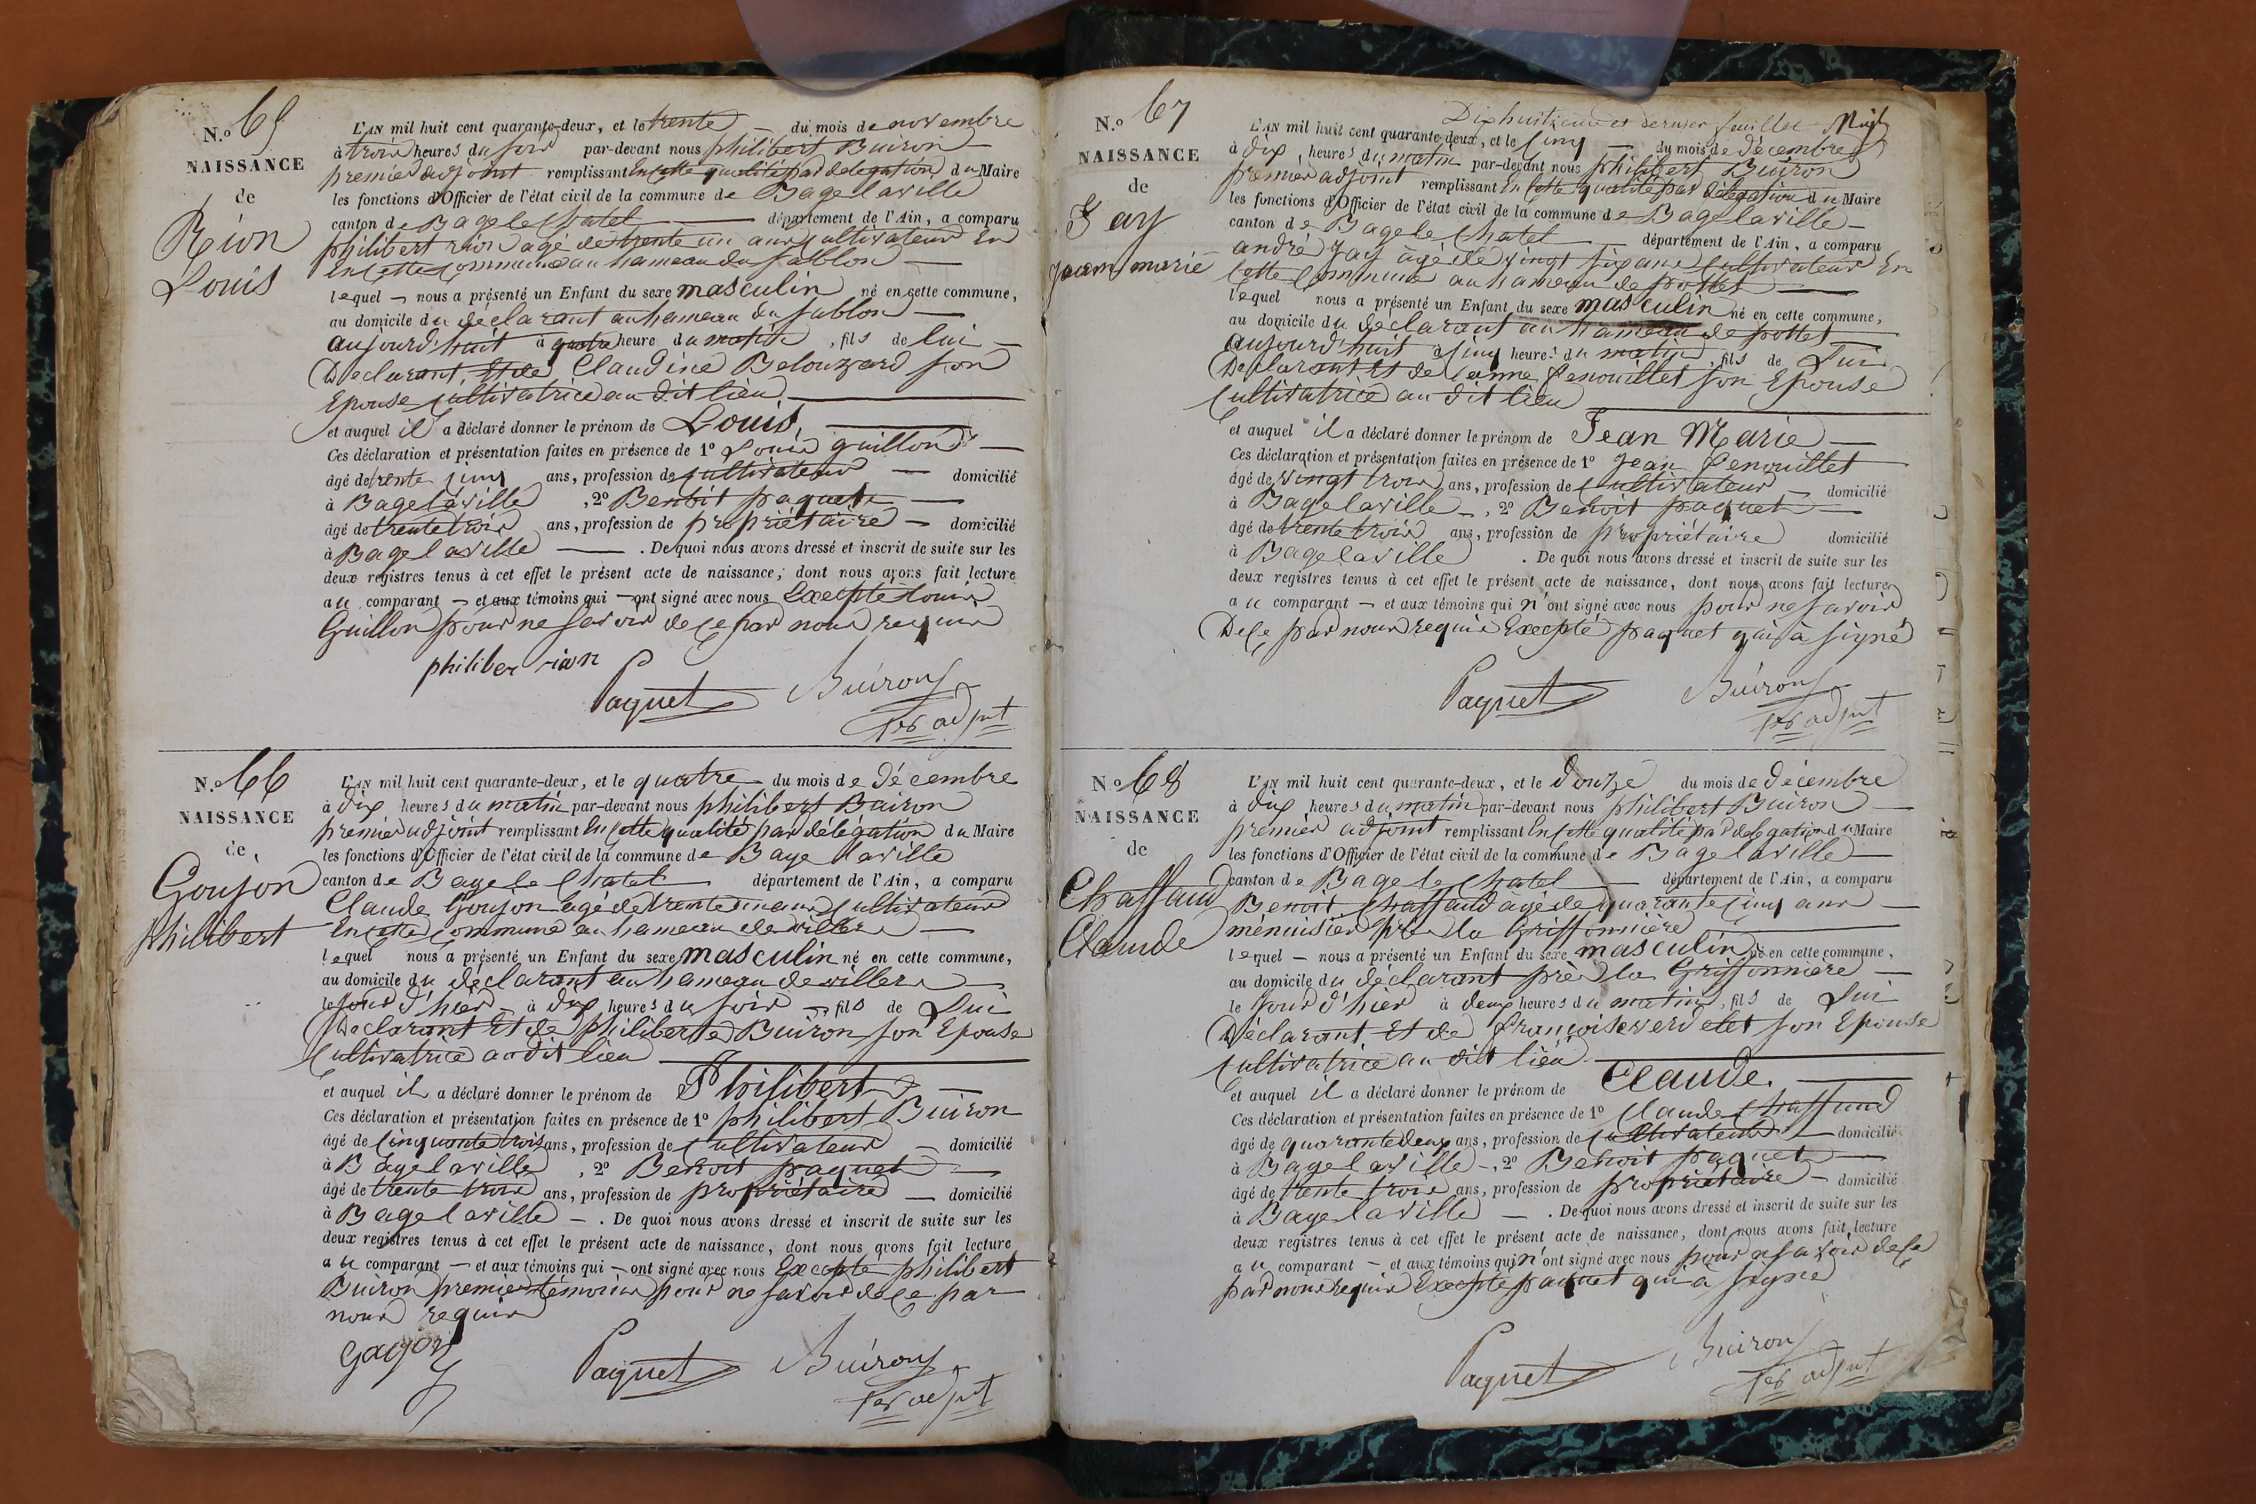 N.o 65
NAISSANCE
de
Rion
Louis
L'AN mil huit cent quarante-deux, et le trente du mois de novembre
à trois heures du soir par-devant nous philibert Buiron
premier adjoint remplissant En cette qualité par délégation du Maire
les fonctions d'Officier de l'état civil de la commune de Bagé laville
canton de Bagé le Chatel département de l'Ain, a comparu
philibert rion agé de trente un ans cultivateur En
En cette commune au hameau du Sablon
lequel nous a présenté un Enfant du sexe masculin né en cette commune,
au domicile du déclarant au hameau du Sablon
aujourd'huit à quatre heure du matin, fils de lui
Déclarant, Et de Claudine Belouzard son
Epouse cultivatrice au dit lieu
et auquel il a déclaré donner le prénom de Louis,
Ces déclaration et présentation faites en présence de 1o Louis guillon
âgé de trente cinq ans, profession de cultivateur domicilié
à Bagé laville, 2o Benoit paquet
âgé de trente trois ans, profession de propriétaire domicilié
à Bagé laville. De quoi nous avons dressé et inscrit de suite sur les
deux registres tenus à cet effet le présent acte de naissance, dont nous avons fait lecture
au comparant et aux témoins qui ont signé avec nous Excepté Louis
Guillon pour ne savoir de ce par nous requis
philiber rion
Paquet Buiron
1er adjnt
N.o 66
NAISSANCE
de
Goujon
philibert
L'AN mil huit cent quarante-deux, et le quatre du mois de décembre
à dix heures du matin par-devant nous philibert Buiron
premier adjoint remplissant En cette qualité par délégation du Maire
les fonctions d'Officier de l'état civil de la commune de Bagé laville
canton de Bagé le Chatel département de l'Ain, a comparu
Claude Goujon agé de trente un ans cultivateur
En cette commune au hameau de villers
lequel nous a présenté un Enfant du sexe masculin né en cette commune,
au domicile du déclarant au hameau de villers
le jour d'hier à dix heures du soir, fils de Lui
Déclarant Et de philiberte Buiron son Epouse
cultivatrice au dit lieu
et auquel il a déclaré donner le prénom de Philibert
Ces déclaration et présentation faites en présence de 1o philibert Buiron
âgé de cinquante trois ans, profession de cultivateur domicilié
à Bagé laville, 2o Benoit paquet
âgé de trente trois ans, profession de propriétaire domicilié
à Bagé laville. De quoi nous avons dressé et inscrit de suite sur les
deux registres tenus à cet effet le présent acte de naissance, dont nous avons fait lecture
au comparant et aux témoins qui ont signé avec nous Excepté philibert
Buiron premier témoin pour ne savoir de ce par
nous requis
Paquet Buiron
1er adjnt
Dixhuitième et dernier feuillet
N.o 67
NAISSANCE
de
Jay
jean marie
L'AN mil huit cent quarante-deux, et le cinq du mois de décembre
à dix heures du matin par-devant nous philibert Buiron
premier adjoint remplissant En cette qualité par délégation du Maire
les fonctions d'Officier de l'état civil de la commune de Bagé laville
canton de Bagé le Chatel département de l'Ain, a comparu
andré Jay âgé de vingt six ans cultivateur En
cette commune au hameau de pottet
lequel nous a présenté un Enfant du sexe masculin né en cette commune,
au domicile du déclarant au hameau de pottet
aujourd'huit à cinq heures du matin, fils de Lui
Déclarant Et de Jeanne Penouillet son Epouse
cultivatrice au dit lieu
et auquel il a déclaré donner le prénom de Jean Marie
Ces déclaration et présentation faites en présence de 1o Jean Penouillet
âgé de vingt trois ans, profession de cultivateur domicilié
à Bagé laville, 2o Benoit paquet
âgé de trente trois ans, profession de propriétaire domicilié
à Bagé laville. De quoi nous avons dressé et inscrit de suite sur les
deux registres tenus à cet effet le présent acte de naissance, dont nous avons fait lecture
au comparant et aux témoins qui n'ont signé avec nous pour ne savoir
De ce par nous requis Excepté paquet qui à signé
Paquet Buiron
1er adjnt
N.o 68
NAISSANCE
de
Chaffaud
Claude
L'AN mil huit cent quarante-deux, et le douze du mois de décembre
à dix heures du matin par-devant nous philibert Buiron
premier adjoint remplissant En cette qualité par délégation du Maire
les fonctions d'Officier de l'état civil de la commune de Bagé laville
canton de Bagé le Chatel département de l'Ain, a comparu
Benoit Chaffaud âgé de quarante cinq ans
menuisier près la Griffonnière
lequel nous a présenté un Enfant du sexe masculin né en cette commune,
au domicile du déclarant près la Griffonnière
le jour d'hier à deux heures du matin, fils de Lui
Déclarant Et de françoise verdelet son Epouse
cultivatrice au dit lieu
et auquel il a déclaré donner le prénom de Claude.
Ces déclaration et présentation faites en présence de 1o Claude Chaffaud
âgé de quarante deux ans, profession de cultivateur domicilié
à Bagé laville, 2o Benoit paquet
âgé de trente trois ans, profession de propriétaire domicilié
à Bagé laville. De quoi nous avons dressé et inscrit de suite sur les
deux registres tenus à cet effet le présent acte de naissance, dont nous avons fait lecture
au comparant et aux témoins qui n'ont signé avec nous pour savoir de ce
par nous requis Excepté paquet qui a signé
Paquet Buiron
1er adjnt